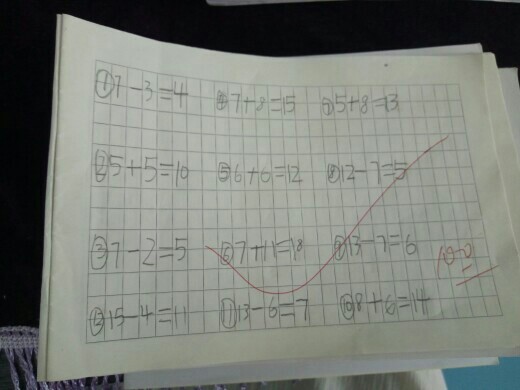 ①7-3=4 ④7+8=15 ⑦5+8=13
②5+5=10 ⑤6+6=12 ⑧12-7=5
③7-2=5 ⑥7+11=18 ⑨13-7=6
15-4=11 ⑪13-6=7 8+6=14
100